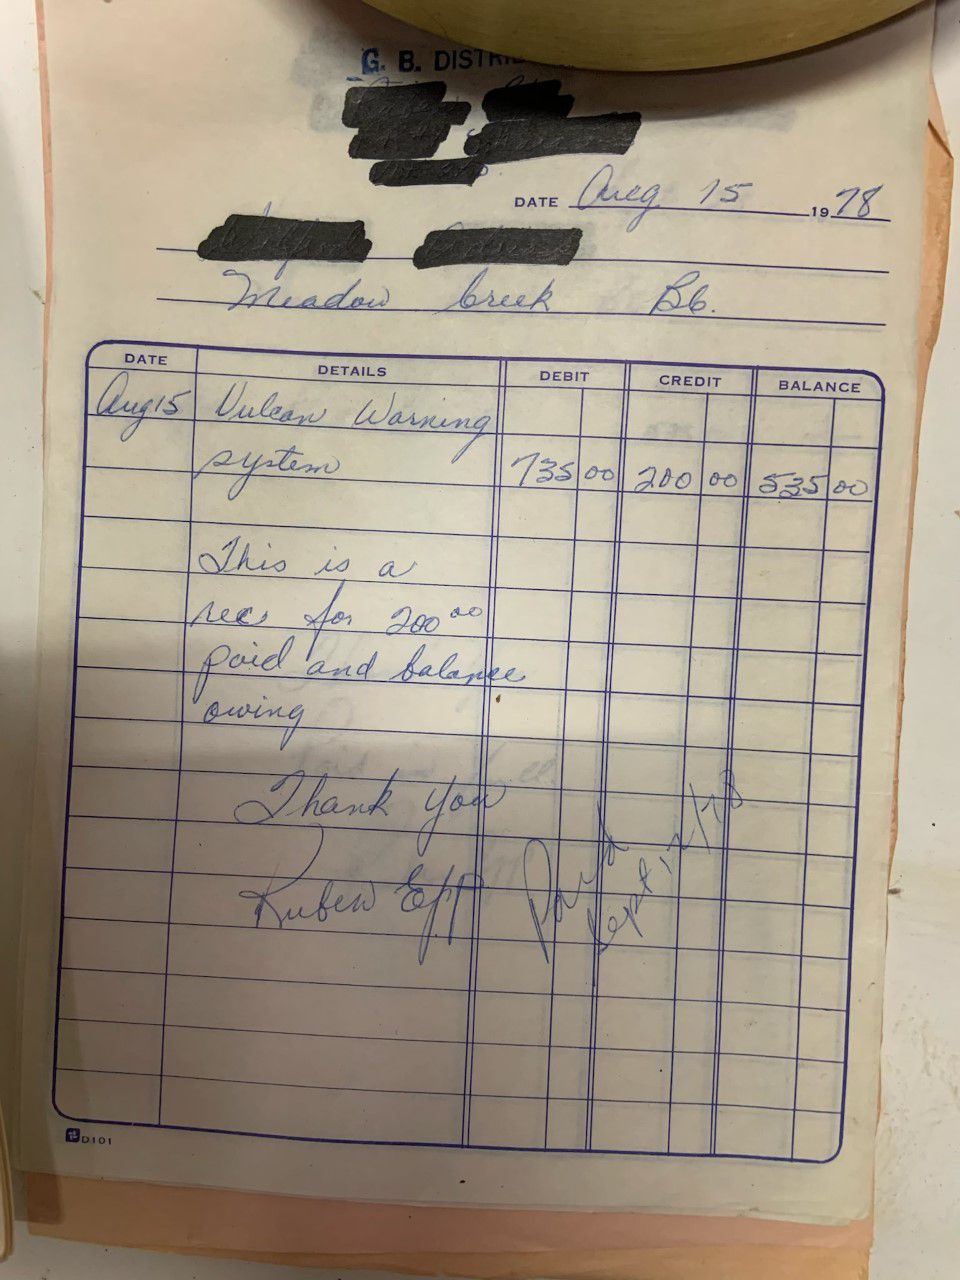 G. B. DISTRI
DATE Aug 15 1978
Meadow Creek Bc.
DATE DETAILS DEBIT CREDIT BALANCE
Aug 15 Vulcan Warning
system 735 00 200 00 535 00
This is a
rec for 200 00
paid and balance
owing
Thank You
Ruben Epp
Paid
Sept 12/78
D101